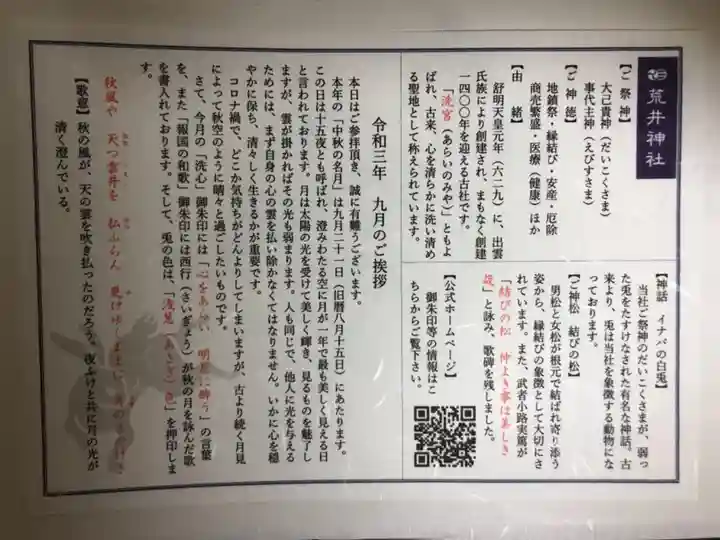 荒井神社
【ご祭神】
大己貴神(だいこくさま)
事代主神(えびすさま)
【ご神徳】
地鎮祭・縁結び・安産・厄除
商売繁盛・医療(健康)ほか
【由緒】
舒明天皇元年(六二九)に、出雲
氏族により創建され、まもなく創建
一四〇〇年を迎える古社です。
「洗宮」(あらいのみや)」ともよ
ばれ、古来、心を清らかに洗い清め
る聖地として称えられています。
【神話 イナバの白兎】
当社ご祭神のだいこくさまが、弱っ
た兎をたすけなされた有名な神話。古
来より、兎は当社を象徴する動物にな
っております。
【ご神松 結びの松】
男松と女松が根元で結ばれ寄り添う
姿から、縁結びの象徴として大切にさ
れています。また、武者小路実篤が
「結びの松 仲よき事は美しき
哉」と詠み、歌碑を残しました。
【公式ホームページ】
御朱印等の情報はこ
ちらからご覧下さい。
令和三年 九月のご挨拶
本日はご参拝頂き、誠に有難うございます。
本年の「中秋の名月」は九月二十一日(旧暦八月十五日)にあたります。
この日は十五夜とも呼ばれ、澄みわたる空に月が一年で最も美しく見える日
と言われております。月は太陽の光を受けて美しく輝き、見るものを魅了し
ますが、雲が掛かればその光も弱まります。人も同じで、他人に光を与える
ためには、まず自身の心の雲を払い除かなくてはなりません。いかに心を穏
やかに保ち、清々しく生きるかが重要です。
コロナ禍で、どこか気持ちがどんよりしてしまいますが、古より続く月見
によって秋空のように晴々と過ごしたいものです。
さて、今月の「洗心」御朱印には「心をあらい 明月に酔う」の言葉
を、また「報国の和歌」御朱印には西行(さいぎょう)が秋の月を詠んだ歌
を書入れております。そして、兎の色は、「浅葱(あさぎ)色」を押印しま
す。
秋風や 天つ雲井を 払ふらん 更けゆくままに 月の
【歌意】秋の風が、天の雲を吹き払ったのだろう。夜ふけと共に月の光が
清く澄んでいる。